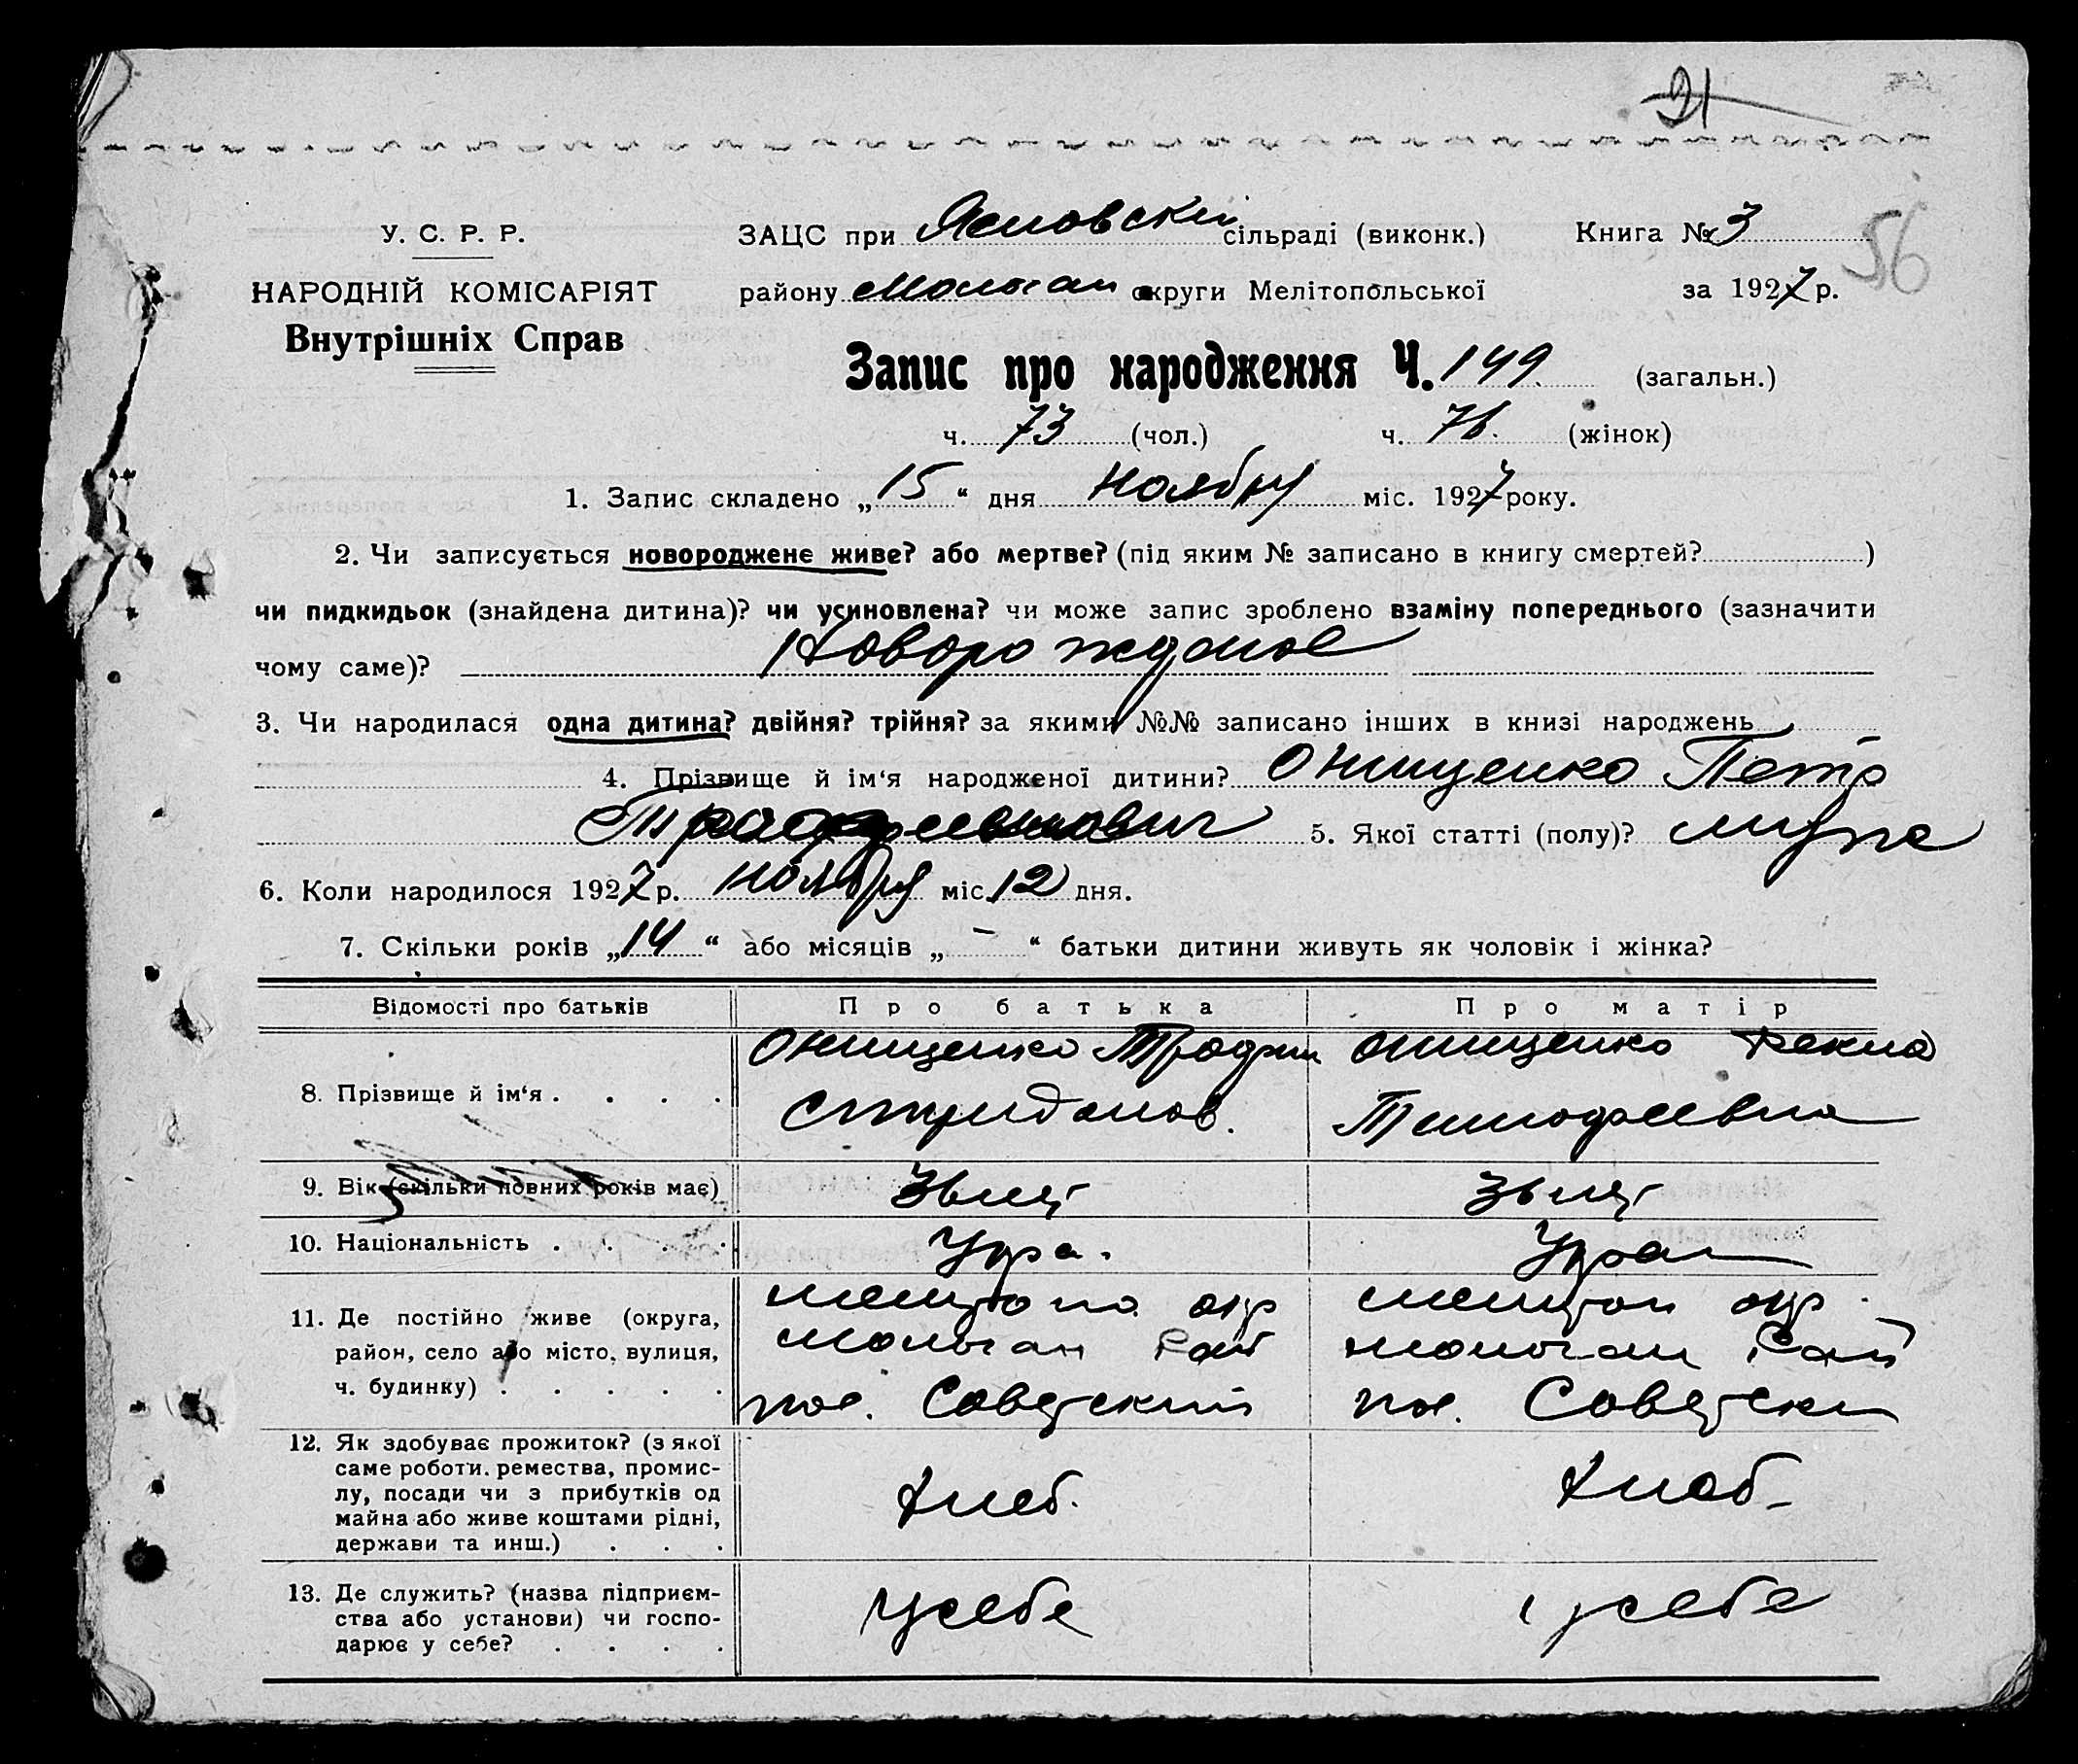 21
56
У. С. Р. Р.
НАРОДНІЙ КОМІСАРІЯТ
Внутрішніх Справ
ЗАЦС при Ясновский сільраді (виконк.) Книга № 3
району Молочан округи Мелітопольської за 1927 р.
Запис про народження Ч. 149. (загальн.)
ч. 73 (чол.) ч. 76. (жінок)
1. Запис складено „15“ дня Ноября міс. 1927 року.
2. Чи записується новороджене живе? або мертве? (під яким № записано в книгу смертей? )
чи пидкидьок (знайдена дитина)? чи усиновлена? чи може запис зроблено взаміну попереднього (зазначити
чому саме)? Новорожденое
3. Чи народилася одна дитина? двійня? трійня? за якими №№ записано інших в книзі народжень
4. Прізвище й ім‘я народженої дитини? Онищенко Петр
5. Якої статті (полу)? муже
6. Коли народилося 1927 р. Ноября міс. 12 дня.
7. Скільки років „14“ або місяців „-“ батьки дитини живуть як чоловік і жінка?
Відомості про батьків Про батька Про матір
8. Прізвище й ім‘я . . . . Онищенко Трофим Онищенко Фекла
Тимофеевна
9. Вік (скільки повних років має) 36 лет 36 лет
10. Національність . . . . Укра. Украи
11. Де постійно живе (округа, мелитопо окр мелитоп окр.
район, село або місто, вулиця, молочан Рай молочан Рай
ч. будинку) . . . . . пос. Советский пос. Советски
12. Як здобуває прожиток? (з якої
саме роботи, ремества, промис-
лу, посади чи з прибутків од Хлеб. Хлеб-
майна або живе коштами рідні,
держави та инш.) . . .
13. Де служить? (назва підприєм-
ства або установи) чи госпо- У себе У себе
дарює у себе? . . . .